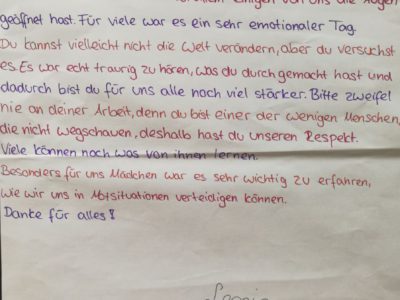 einigen von uns die Augen
geöffnet hast. Für viele war es ein sehr emotionaler Tag.
Du kannst vielleicht nicht die Welt verändern, aber du versuchst
es. Es war echt traurig zu hören, was du durchgemacht hast und
dadurch bist du für uns alle noch viel stärker. Bitte zweifel
nie an deiner Arbeit, denn du bist einer der wenigen Menschen,
die nicht wegschauen, deshalb hast du unseren Respekt.
Viele können noch was von ihnen lernen.
Besonders für uns Mädchen war es sehr wichtig zu erfahren,
wie wir uns in Notsituationen verteidigen können.
Danke für alles!